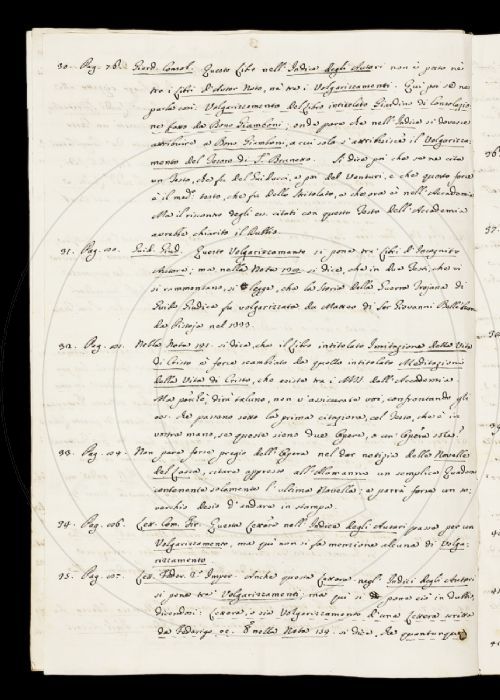 30. Pag. 76. Giard. Consol. Questo Libro nell'Indice degli Autori non è posto nè
tra i Libri d'Autor Noto, nè tra i Volgarizzamenti. Qui poi se ne
parla così. Volgarizzamento del Libro intitolato Giardino di Consolazio-
ne fatto da Bono Giamboni; onde pare che nell'Indice si dovesse
attribuire a Bono Giamboni, a cui solo s'attribuisce il Volgarizza-
mento del Tesoro di S. Brunetto. Si dice poi che se ne cita
un Testo, che fu del Guiducci, e poi del Venturi, e che questo forse
è il med. testo, che fu dello Stritolato, e che ora è nell'Accademia
Ma il riscontro degli es. citati con questo Testo dell'Accademia
avrebbe chiarito il dubbio.
31. Pag. Guid. Giud. Questo Volgarizzamento si pone tra Libri d'Incognito
Autore; ma nella Nota si dice, che in due Testi, che vi
si rammentano, si legge, che la Storia della Guerra Trojana di
Guido Giudice fu volgarizzata da Matteo di Ser Giovanni
da Pistoja nel 1333.
32. Pag. Nella Nota 191. si dice, che il Libro intitolato Imitazione della Vita
di Cristo è forse scambiato da quello intitolato Meditazioni
della Vita di Cristo, che esiste tra i MSS. dell'Accademia.
Ma perchè, dirà taluno, non v'assicurate voi, confrontando gli
es. che passano sotto la prima citazione, col Testo, che è in
vostra mano, se queste sieno due Opere, o un'Opera sola?
33. Pag. Non pare forse pregio dell'Opera nel dar notizia delle Novelle
del Lasca, citare appresso all'Alamanno un semplice Quaderno
contenente solamente l'ultima Novella; e potrà forse un so-
verchio desio d'andare in stampa.
34. Pag. 106. Lett. Com. Fir. Questa Lettera nell'Indice degli Autori passa per un
Volgarizzamento, ma quì non si fa menzione alcuna di Volga-
rizzamento.
35. Pag. 107. Lett. Feder. 2. Imper. Anche questa Lettera negl'Indici degli Autori
si pone tra' Volgarizzamenti; ma quì si pone ciò in dubbio,
dicendosi: Lettera, o sia Volgarizzamento d'una Lettera scritta
da Federigo, ec. E nella Nota 139. si dice, che quantunque